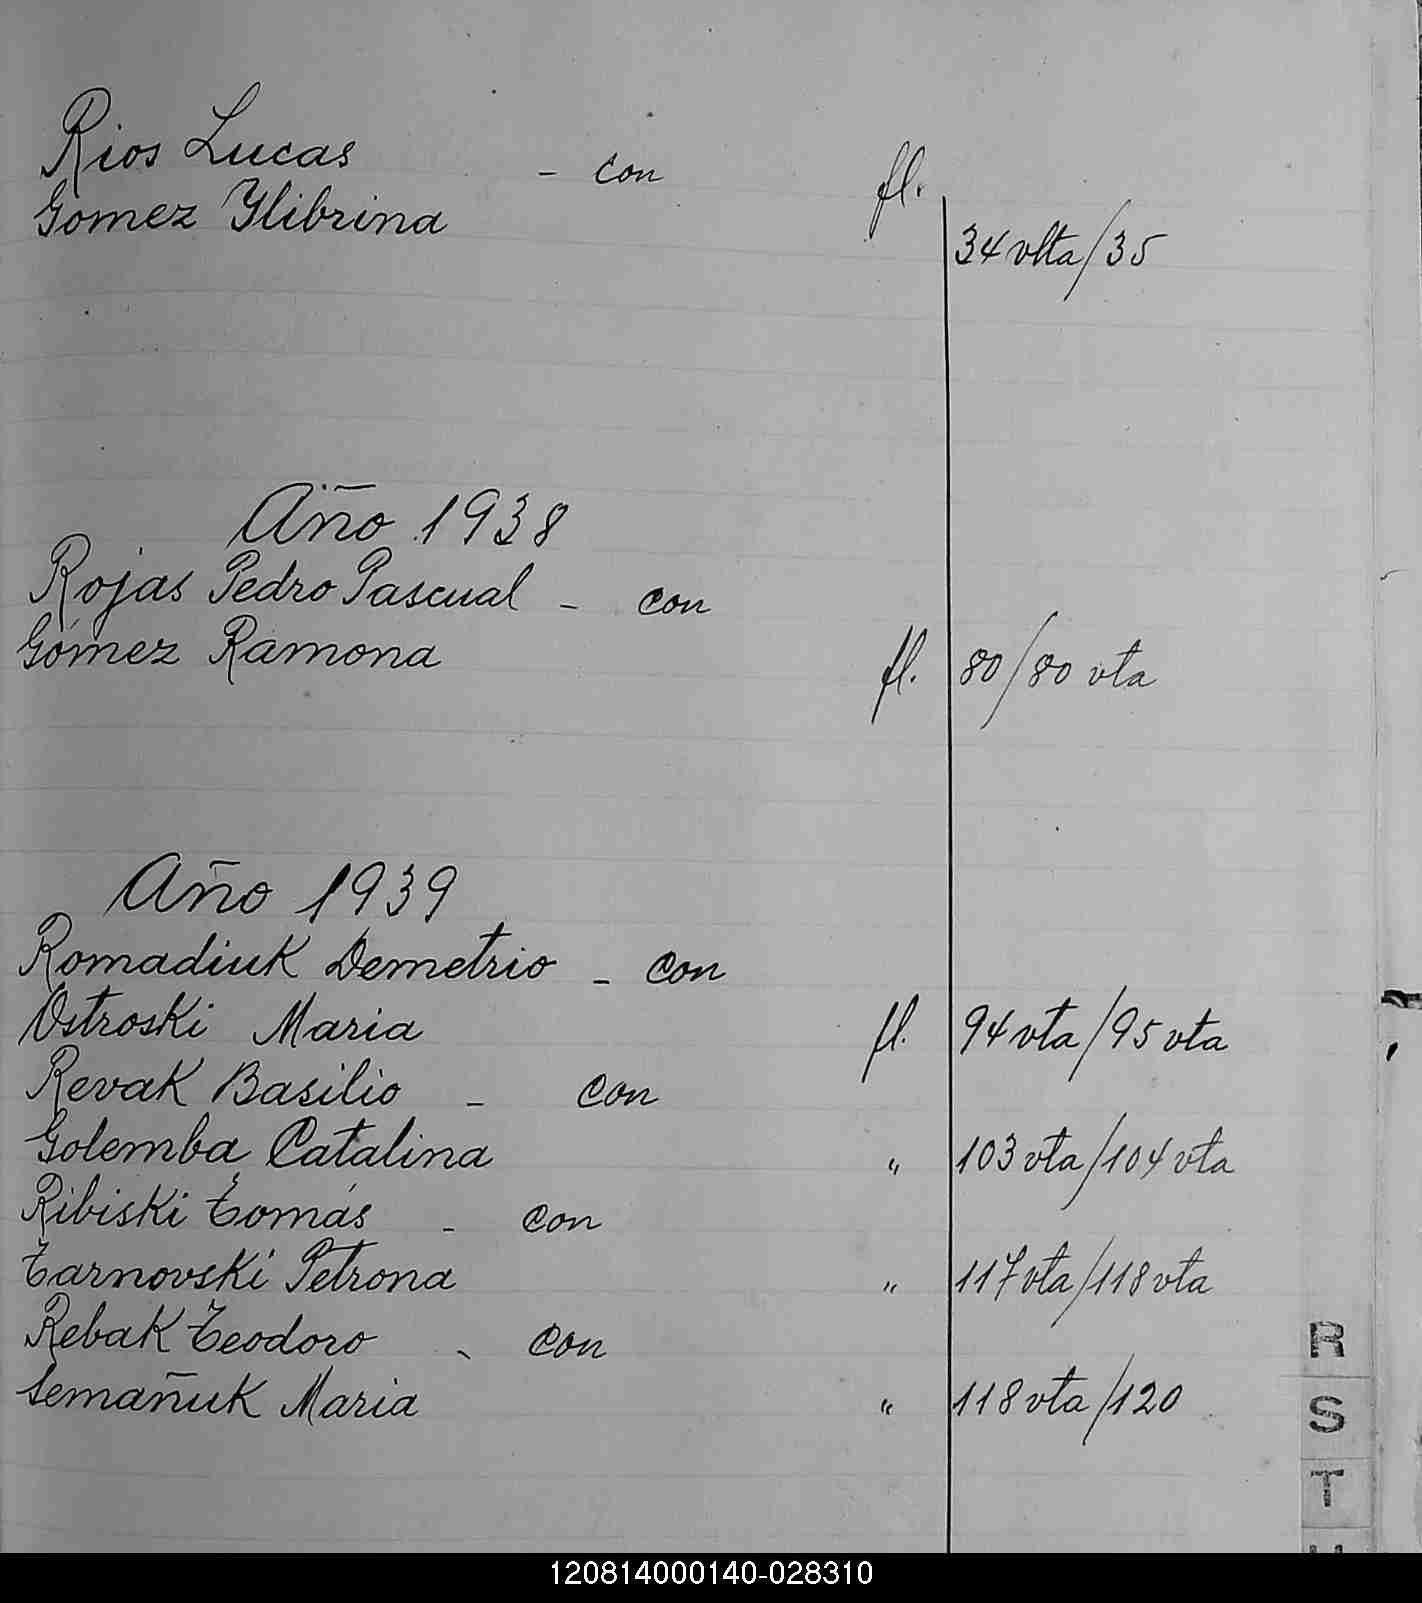 Rios Lucas - con fl.
Gomez Ylibrina 34 vlta/35
Año 1938
Rojas Pedro Pascual - con
Gómez Ramona fl. 80/80 vta
Año 1939
Romadiuk Demetrio - con
Ostroski Maria fl. 94 vta/95 vta
Revak Basilio - con
Golemba Catalina " 103 vta/104 vta
Ribiski Tomás - con
Tarnovski Petrona " 117 vta/118 vta
Rebak Teodoro - con
Semañuk Maria " 118 vta/120
R
S
T
120814000140-028310